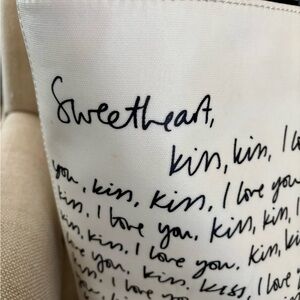 Sweetheart,
kiss, kiss, I
you, kiss, kiss, I love you
kiss, I love you, kiss, kiss, I
kiss, kiss, I love you, kiss,
I love you, kiss, kiss, I love
kiss, I love you, kiss
I love